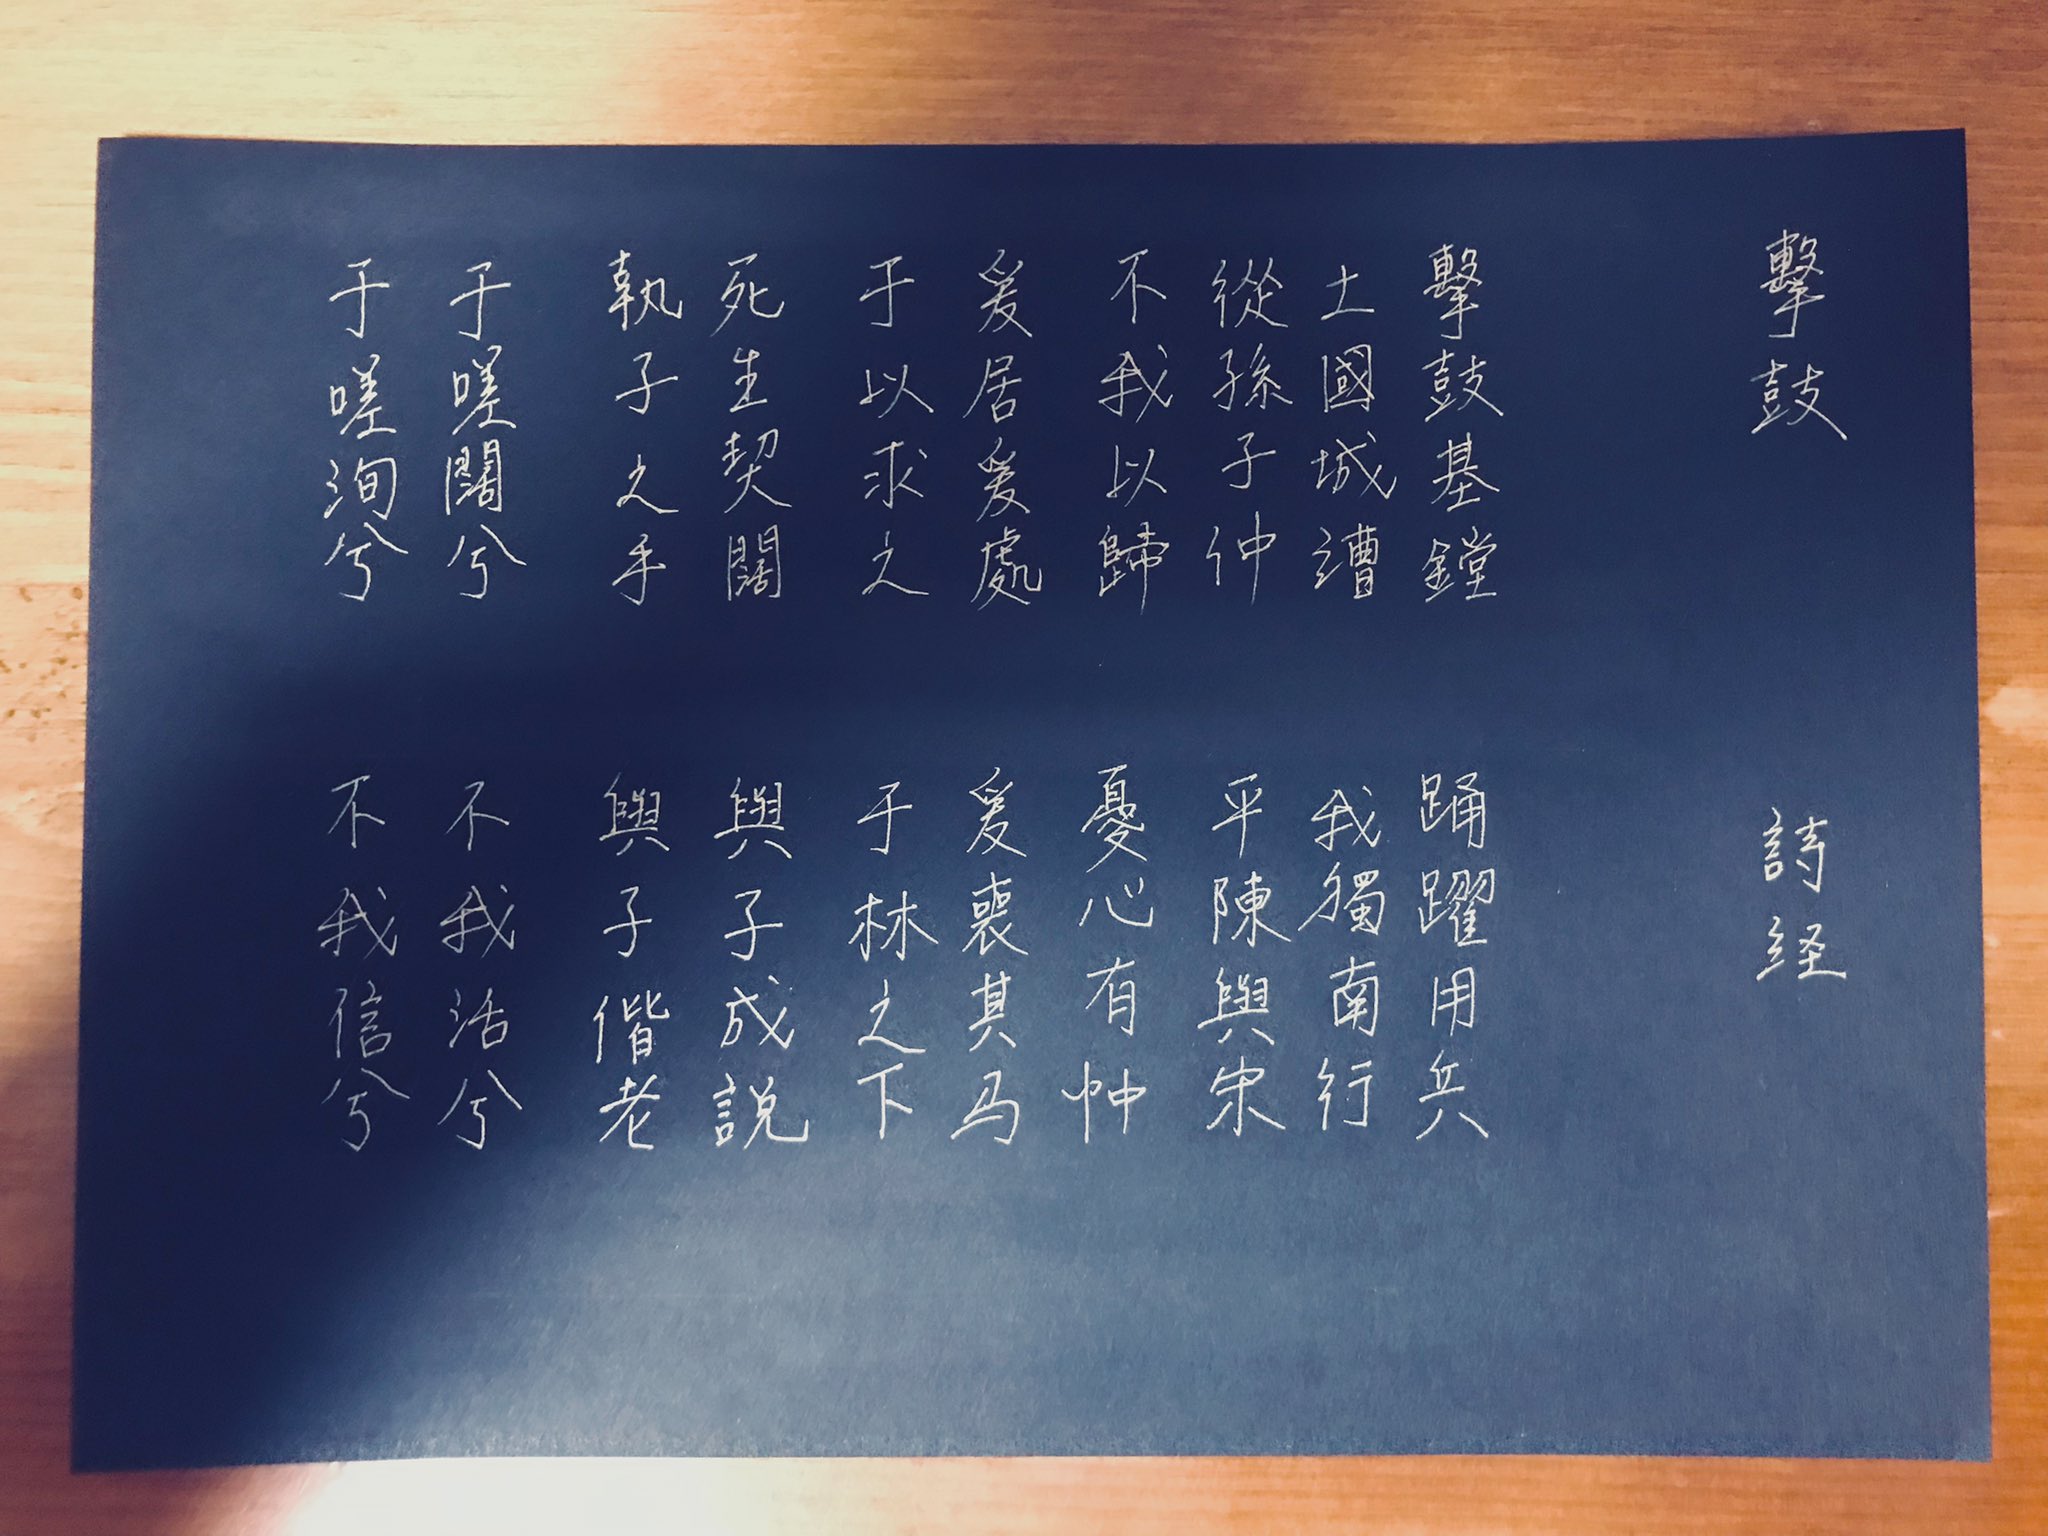 擊鼓 詩経
擊鼓基鏜 踊躍用兵
土國城漕 我獨南行
從孫子仲 平陳與宋
不我以歸 憂心有忡
爰居爰處 爰喪其马
于以求之 于林之下
死生契闊 與子成説
執子之手 與子偕老
于嗟闊兮 不我活兮
于嗟洵兮 不我信兮